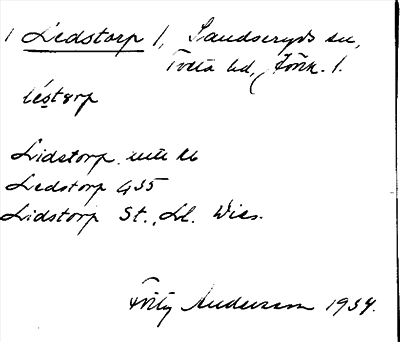 1 Ledstorp 1, Sandseryds sn,
Tveta hd, Jönk. l.
léstårp
Lidstorp
Ledstorp G35
Lidstorp St., Ll. Wies.
Fritz Andersson 1934.